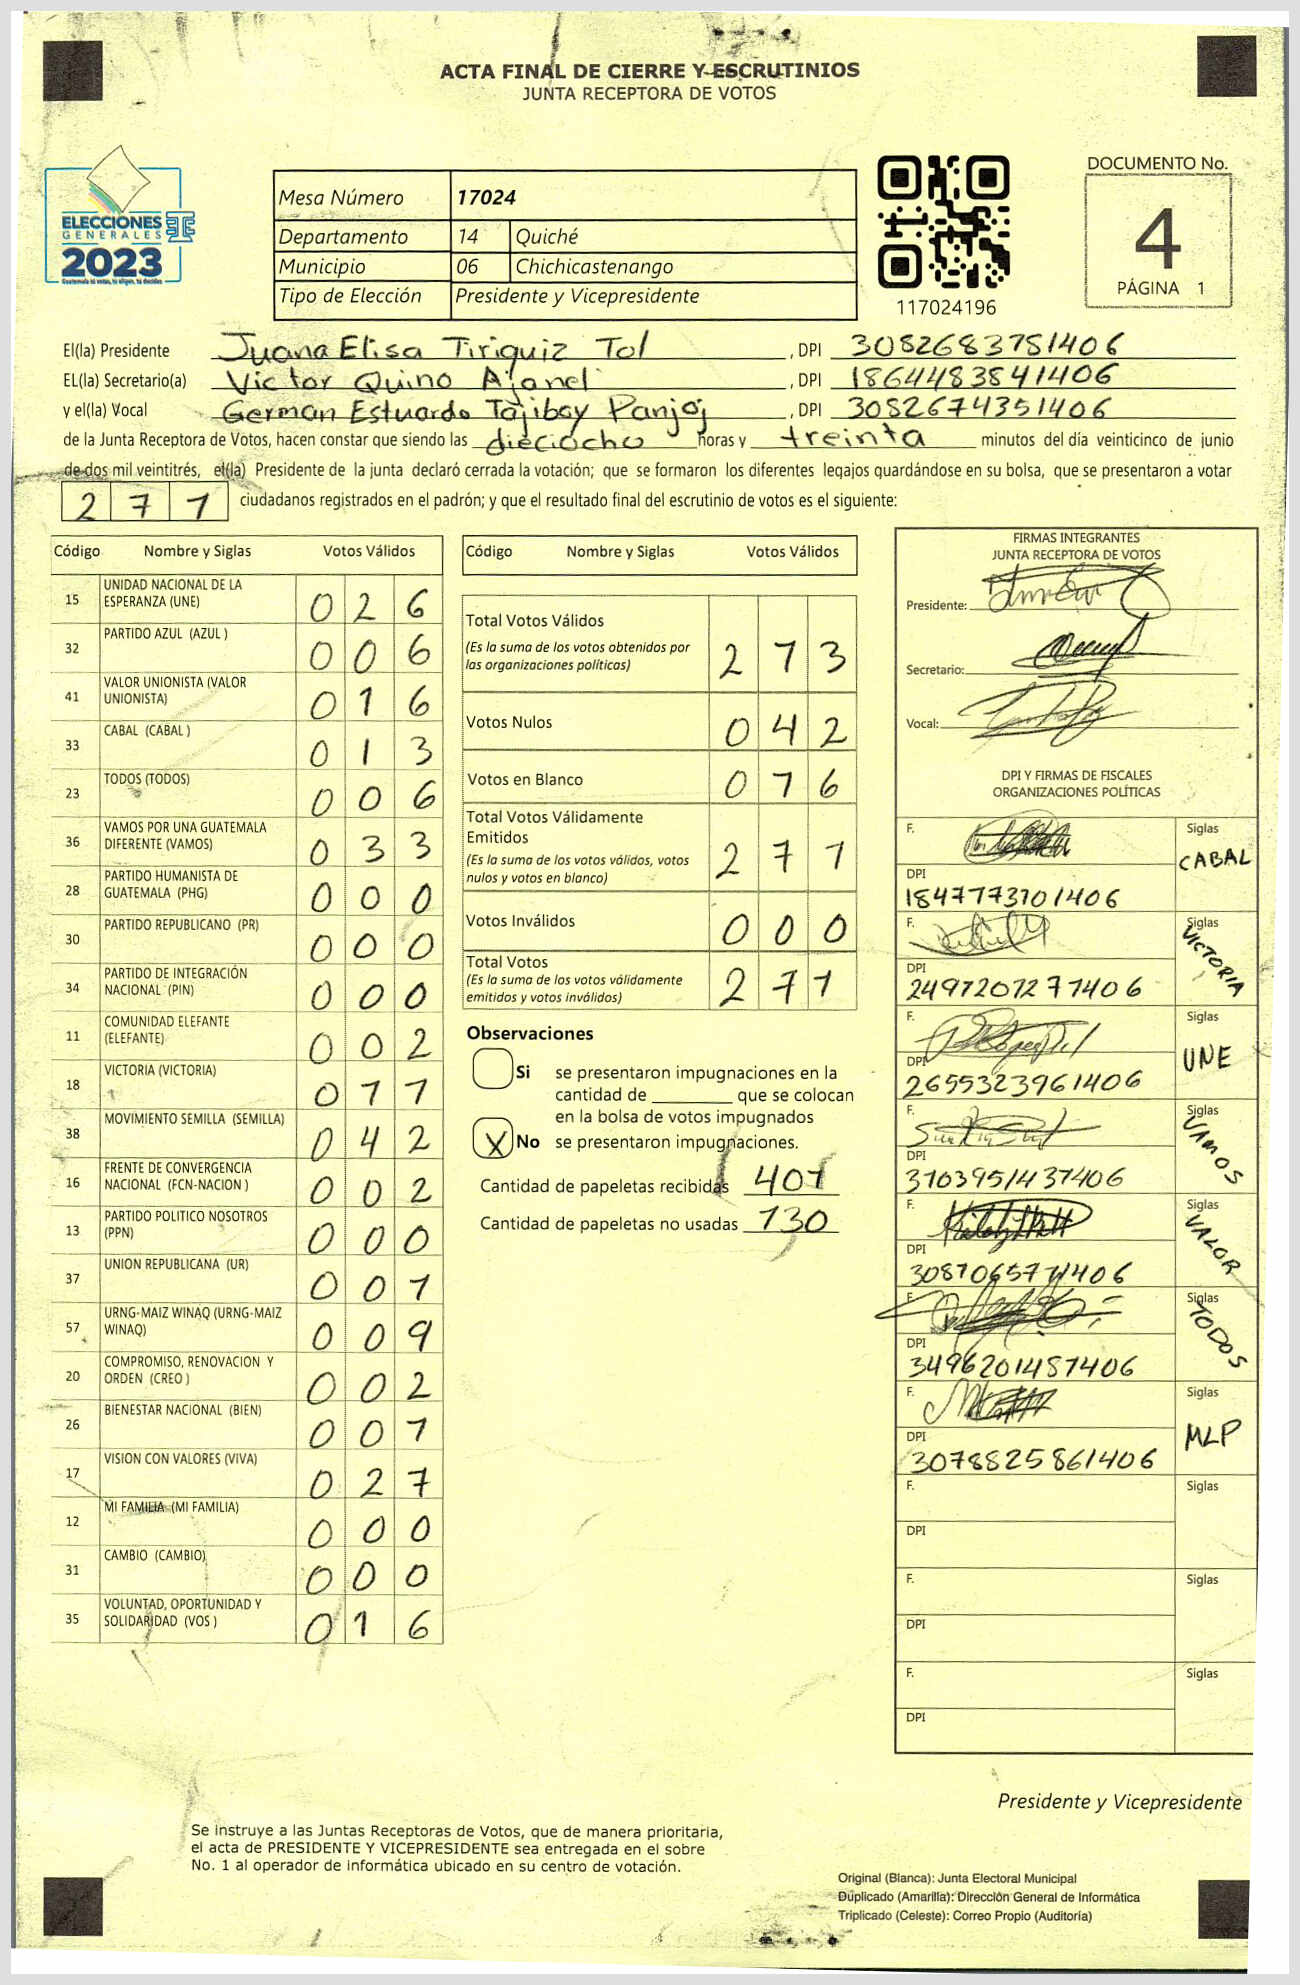 ACTA FINAL DE CIERRE Y ESCRUTINIOS
JUNTA RECEPTORA DE VOTOS
ELECCIONES
GENERALES
2023
Guatemala tú votas, tú eliges, tú decides
Mesa Número 17024
Departamento 14 Quiché
Municipio 06 Chichicastenango
Tipo de Elección Presidente y Vicepresidente
117024196
DOCUMENTO No.
4
PÁGINA 1
El(la) Presidente Juana Elisa Tiriquiz Tol , DPI 3082683781406
EL(la) Secretario(a) Victor Quino Ajanel , DPI 1864483841406
y el(la) Vocal German Estuardo Tajiboy Panjoj , DPI 3082674351406
de la Junta Receptora de Votos, hacen constar que siendo las dieciocho horas y treinta minutos del día veinticinco de junio
de dos mil veintitrés, el(la) Presidente de la junta declaró cerrada la votación; que se formaron los diferentes legajos quardándose en su bolsa, que se presentaron a votar
2 7 1 ciudadanos registrados en el padrón; y que el resultado final del escrutinio de votos es el siguiente:
Código Nombre y Siglas Votos Válidos
15 UNIDAD NACIONAL DE LA ESPERANZA (UNE) 0 2 6
32 PARTIDO AZUL (AZUL ) 0 0 6
41 VALOR UNIONISTA (VALOR UNIONISTA) 0 1 6
33 CABAL (CABAL ) 0 1 3
23 TODOS (TODOS) 0 0 6
36 VAMOS POR UNA GUATEMALA DIFERENTE (VAMOS) 0 3 3
28 PARTIDO HUMANISTA DE GUATEMALA (PHG) 0 0 0
30 PARTIDO REPUBLICANO (PR) 0 0 0
34 PARTIDO DE INTEGRACIÓN NACIONAL (PIN) 0 0 0
11 COMUNIDAD ELEFANTE (ELEFANTE) 0 0 2
18 VICTORIA (VICTORIA) 0 7 7
38 MOVIMIENTO SEMILLA (SEMILLA) 0 4 2
16 FRENTE DE CONVERGENCIA NACIONAL (FCN-NACION ) 0 0 2
13 PARTIDO POLITICO NOSOTROS (PPN) 0 0 0
37 UNION REPUBLICANA (UR) 0 0 1
57 URNG-MAIZ WINAQ (URNG-MAIZ WINAQ) 0 0 9
20 COMPROMISO, RENOVACION Y ORDEN (CREO ) 0 0 2
26 BIENESTAR NACIONAL (BIEN) 0 0 1
17 VISION CON VALORES (VIVA) 0 2 7
12 MI FAMILIA (MI FAMILIA) 0 0 0
31 CAMBIO (CAMBIO) 0 0 0
35 VOLUNTAD, OPORTUNIDAD Y SOLIDARIDAD (VOS ) 0 1 6
Código Nombre y Siglas Votos Válidos
Total Votos Válidos 2 7 3
(Es la suma de los votos obtenidos por
las organizaciones políticas)
Votos Nulos 0 4 2
Votos en Blanco 0 7 6
Total Votos Válidamente
Emitidos 2 7 1
(Es la suma de los votos válidos, votos
nulos y votos en blanco)
Votos Inválidos 0 0 0
Total Votos 2 7 1
(Es la suma de los votos válidamente
emitidos y votos inválidos)
Observaciones
Si se presentaron impugnaciones en la
cantidad de ________ que se colocan
en la bolsa de votos impugnados
X No se presentaron impugnaciones.
Cantidad de papeletas recibidas 401
Cantidad de papeletas no usadas 130
FIRMAS INTEGRANTES
JUNTA RECEPTORA DE VOTOS
Presidente:
Secretario:
Vocal:
DPI Y FIRMAS DE FISCALES
ORGANIZACIONES POLÍTICAS
F. Siglas
CABAL
DPI
1847773701406
F. Siglas
VICTORIA
DPI
2497207271406
F. Siglas
UNE
DPI
2655323961406
F. Siglas
VAMOS
DPI
3703951437406
F. Siglas
VALOR
DPI
3087065771406
F. Siglas
TODOS
DPI
3496201487406
F. Siglas
MLP
DPI
3078825861406
F. Siglas
DPI
F. Siglas
DPI
F. Siglas
DPI
Presidente y Vicepresidente
Se instruye a las Juntas Receptoras de Votos, que de manera prioritaria,
el acta de PRESIDENTE Y VICEPRESIDENTE sea entregada en el sobre
No. 1 al operador de informática ubicado en su centro de votación.
Original (Blanca): Junta Electoral Municipal
Duplicado (Amarilla): Dirección General de Informática
Triplicado (Celeste): Correo Propio (Auditoría)